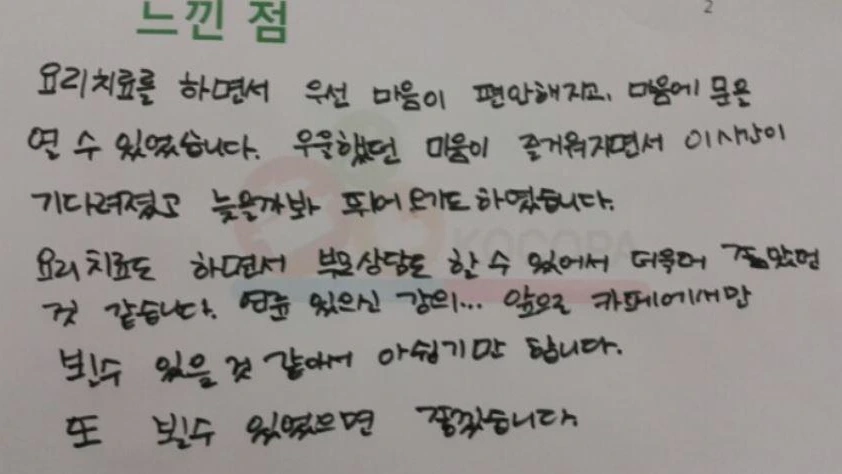 2
느낀 점
요리치료를 하면서 우선 마음이 편안해지고, 마음에 문은
열 수 있었습니다. 우울했던 마음이 즐거워지면서 이시간이
기다려졌고 늦을까봐 뛰어오기도하였습니다.
요리치료도 하면서 부모상담도 할 수 있어서 더욱더 좋았던
것 같습니다. 연륜 있으신 강의... 앞으로 카페에서만
뵐수 있을 것 같아서 아쉽기만 합니다.
또 뵐수 있었으면 좋겠습니다.
KOCOPA